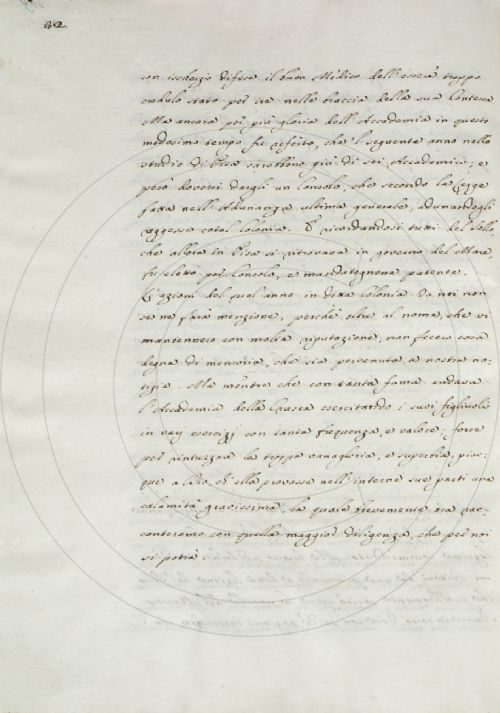 82.
con ischerzi difese il buon Medico dell'essere troppo
credulo stato per tre nelle braccia della sua Contessa
Ma ancora per più gloria dell'Accademia in questo
medesimo tempo fu riferito, che l'seguente anno nello
studio di Pisa sarebbono più di sei Accademici; e
però doversi dargli un Consolo, che secondo la legge
fatta nell'Adunanza ultima generale, adunandogli
reggesse cotal Colonia. E ricordandosi tutti del Sollo,
che allora in Pisa si ritrovava in governo del Mare
fu eletto per Consolo, e mandatognene patente.
L'azioni del qual anno in detta Colonia da noi non
se ne farà menzione, perchè oltre al nome, che vi
mantennero con molta riputazione, non fecero cosa
degna di memoria, che sia pervenuta a nostra no-
tizia. Ma mentre che con tanta fama andava
l'Accademia della Crusca esercitando i suoi figliuoli
in varj esercizj con tanta frequenza, e valore: forse
per rintuzzar la troppa vanagloria, e superbia, piac-
que a Dio, ch'ella provasse nell'interne sue parti una
calamità gravissima, la quale brevemente ora rac-
conteremo con quella maggior diligenza, che per noi
si potrà